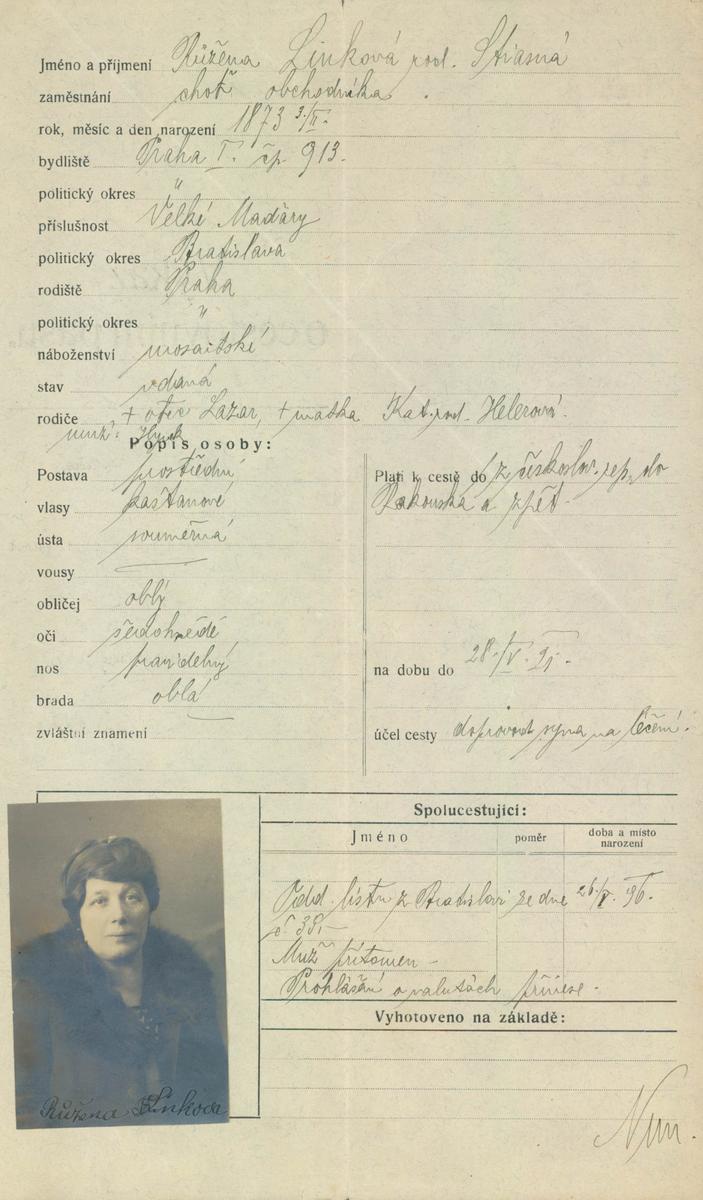 Jméno a příjmení Růžena Linková rod. Stiasná
zaměstnání choť obchodníka.
rok, měsíc a den narození 1873 3/II.
bydliště Praha I. čp. 913.
politický okres "
příslušnost Velké Maďary
politický okres Bratislava
rodiště Praha
politický okres "
náboženství mosaitské
stav vdaná
rodiče + otec Lazar, + matka Kat. rod. Helerová.
muž: Hynek
Popis osoby:
Postava prostřední
vlasy kaštanové
ústa souměrná
vousy —
obličej oblý
oči šedohnědé
nos pravidelný
brada oblá
zvláštní znamení —
Platí k cestě do z českoslov. rep. do
Rakouska a zpět.
na dobu do
účel cesty doprovod syna na léčení.
Spolucestující:
Jméno poměr doba a místo narození
Odd. listu z Bratislavi ze dne 26./V. 96.
Muž přítomen –
Prohlášení o valutách přinese.
Vyhotoveno na základě:
Růžena Linková